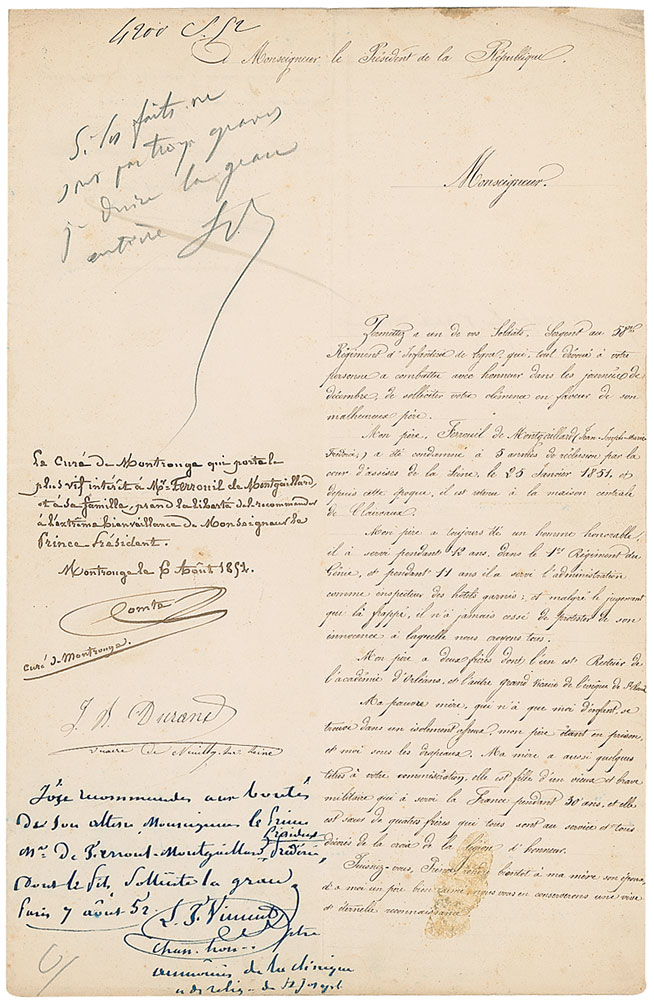 4200 S. 52
A Monseigneur le Président de la République.
Si les faits ne
sont pas trop graves
je désire la grace
entière
Monseigneur.
Permettez a un de vos Soldats, Sergent au 58me
Régiment d'Infanterie de Ligne, qui, tout dévoué à votre
personne a combattu avec honneur dans les journées de
décembre, de solliciter votre clémence en faveur de son
malheureux père.
Mon père, Ferrouil de Montgaillard (Jean-Joseph-Marie-
Frédéric,) a été condamné à 5 années de réclusion par la
cour d'assises de la Seine, le 25 Janvier 1851, et
depuis cette époque, il est retenu à la maison centrale
de Clairvaux.
Mon père a toujours été un homme honorable,
il a servi pendant 12 ans, dans le 1er Régiment du
Génie, et pendant 11 ans il a servi l'administration
comme inspecteur des hôtels garnis; et malgré le jugement
que l'a frappé, il n'a jamais cessé de protester de son
innocence à laquelle nous croyons tous.
Mon père a deux frères dont l'un est Recteur de
l'académie d'Orléans, et l'autre grand vicaire de l'évêque de
Ma pauvre mère, qui n'a que moi d'enfant, se
trouve dans un isolement affreux, mon père étant en prison,
et moi sous les drapeaux. Ma mère a aussi quelques
titres à votre commisération, elle est fille d'un vieux et brave
militaire qui a servi la France pendant 30 ans, et elle
est sœur de quatre frères qui tous sont au service et tous
décorés de la croix de la légion d'honneur.
Puissiez-vous, Prince, rendre bientôt à ma mère son époux,
et a moi un père bien aimé, nous vous en conserverons une vive
et éternelle reconnaissance.
Le Curé de Montrouge qui porte le
plus vif intérêt à Mr Ferrouil de Montgaillard
et à sa famille, prend la liberté de le recommander
à l'extrême bienveillance de Monseigneur le
Prince Président.
Montrouge le 6 Août 1852.
Comte
curé de Montrouge.
J. A. Durand
vicaire de Neuilly sur Seine
J'ose recommander aux bontés
de Son altesse Monseigneur le Prince
Président
Mr. De Ferrouil-Montgaillard, frédéric,
dont le fils, sollicite la grace
Paris 7 août 52
L. F. Vincent
ptre
chan. hon.
aumônier de la clinique
et des relig. de St Joseph